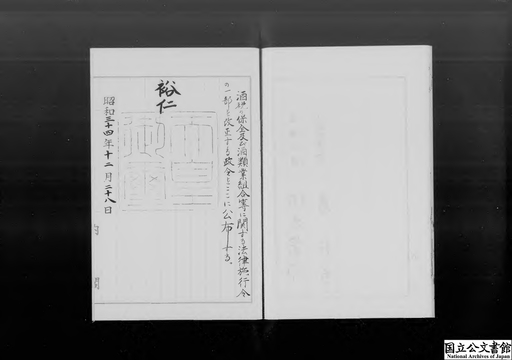 酒税の保全及び酒類業組合等に関する法律施行令
の一部を改正する政令をここに公布する。
裕仁
昭和三十四年十二月二十八日
内閣
国立公文書館
National Archives of Japan